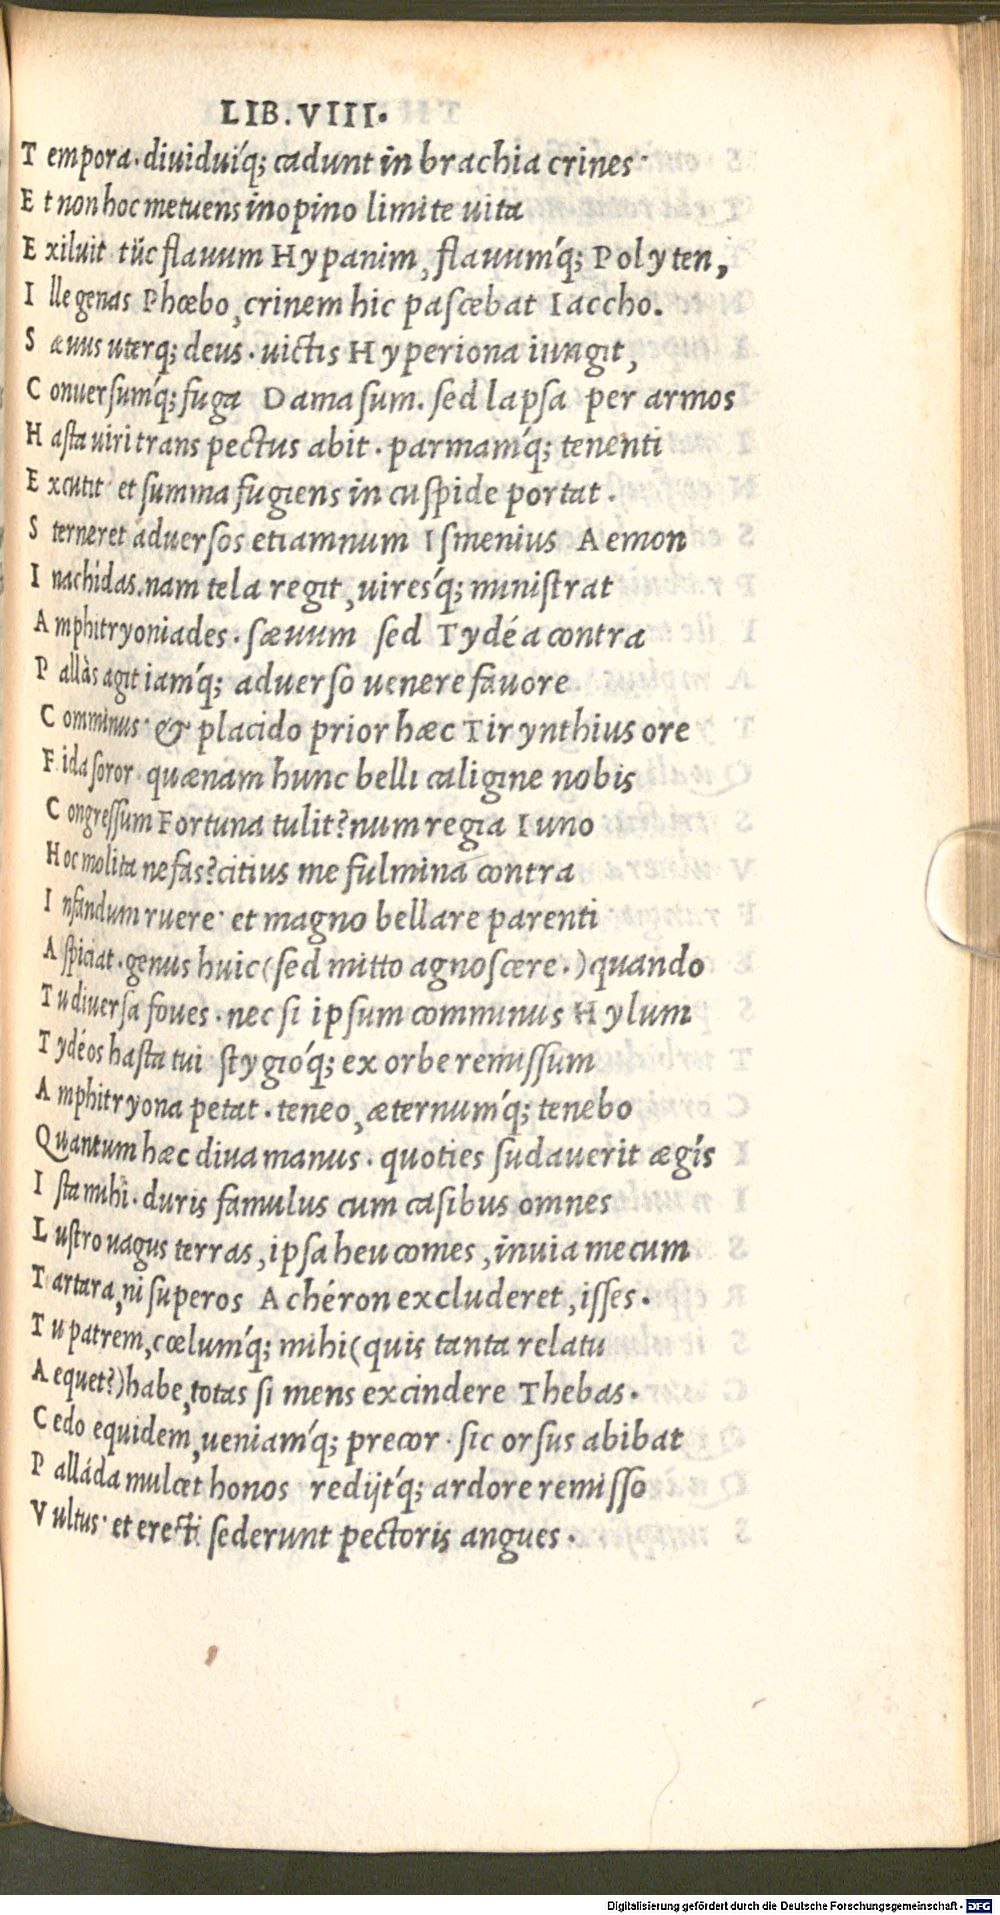 LIB. VIII.
T empora. diuiduíq; cadunt in brachia crines.
E t non hoc metuens inopino limite uita
E xiluit tũc flauum Hypanim, flauumq́; Polyten,
I lle genas Phœbo, crinem hic pascebat Iaccho.
S æuus uterq; deus. uictis Hyperiona iungit,
C onuersumq́; fuga Damasum. sed lapsa per armos
H asta uiri trans pectus abit. parmamq́; tenenti
E xcutit. et summa fugiens in cuspide portat.
S terneret aduersos etiamnum Ismenius Aemon
I nachidas. nam tela regit, uiresq́; ministrat
A mphitryoniades. sæuum sed Tydéa contra
P allàs agit iamq́; aduerso uenere fauore
C omminus. & placido prior hæc Tirynthius ore
F ida soror quænam hunc belli caligine nobis
C ongressum Fortuna tulit? num regia Iuno
H oc molita nefas? citius me fulmina contra
I nfandum ruere. et magno bellare parenti
A spiciat. genus huic (sed mitto agnoscere.) quando
T u diuersa foues. nec si ipsum comminus Hylum
T ydéos hasta tui stygióq; ex orbe remissum
A mphitryona petat. teneo, æternumq́; tenebo
Quantum hæc diua manus. quoties sudauerit ægis
I sta mihi. duris famulus cum casibus omnes
L ustro uagus terras, ipsa heu comes, inuia mecum
T artara, ni superos Achéron excluderet, isses.
T u patrem, cœlumq́; mihi (quis tanta relatu
A equet?) habe, totas si mens excindere Thebas.
C edo equidem, ueniamq́; precor. sic orsus abibat
P alláda mulcet honos redijtq́; ardore remisso
V ultus. et erecti sederunt pectoris angues.
Digitalisierung gefördert durch die Deutsche Forschungsgemeinschaft - DFG